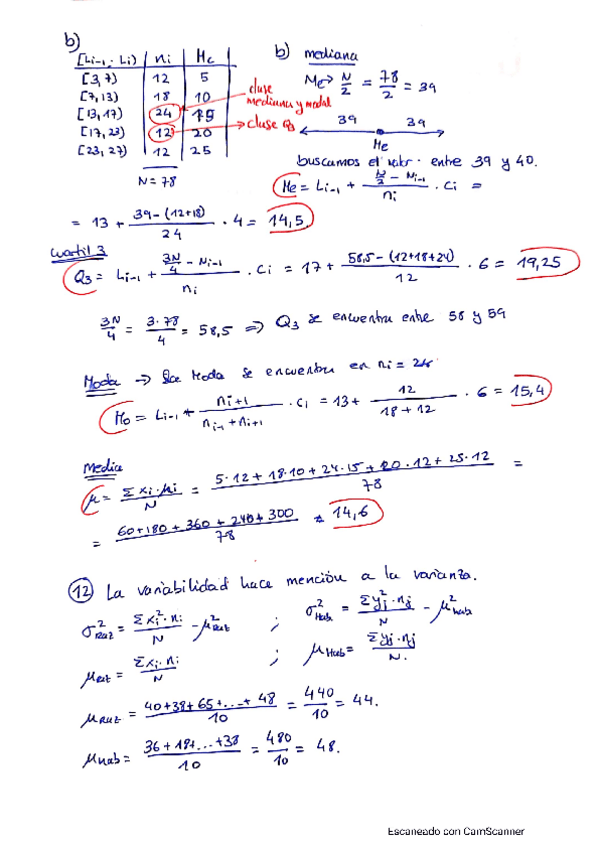 b)
[Li-1 - Li) | ni | Mc
[3, 7) 12 5
[7, 13) 18 10
[13, 17) 24 15
[17, 23) 12 20
[23, 27) 12 25
N = 78
clase
mediana y modal
clase Q3
b) mediana
Me → N/2 = 78/2 = 39
39 39
Me
buscamos el valor entre 39 y 40.
Me = Li-1 + (N/2 - Ni-1)/ni · Ci =
= 13 + (39 - (12+18))/24 · 4 = 14,5
Cuartil 3
Q3 = Li-1 + (3N/4 - Ni-1)/ni · Ci = 17 + (58,5 - (12+18+24))/12 · 6 = 19,25
3N/4 = 3·78/4 = 58,5 ⇒ Q3 se encuentra entre 58 y 59
Moda → La Moda se encuentra en ni = 24
Mo = Li-1 + ni+1/(ni-1 + ni+1) · Ci = 13 + 12/(18+12) · 6 = 15,4
Media
μ = Σxi·μi/N = (5·12 + 18·10 + 24·15 + 20·12 + 25·12)/78 =
= (60+180+360+240+300)/78 ≈ 14,6
12 La variabilidad hace mención a la varianza.
σ²Rut = Σxi²·ni/N - μ²Rut ; σ²Hab = Σyj²·nj/N - μ²hab
μRut = Σxi·ni/N ; μHab = Σyj·nj/N.
μRut = (40+38+65+...+48)/10 = 440/10 = 44.
μhab = (36+19+...+38)/10 = 480/10 = 48.
Escaneado con CamScanner